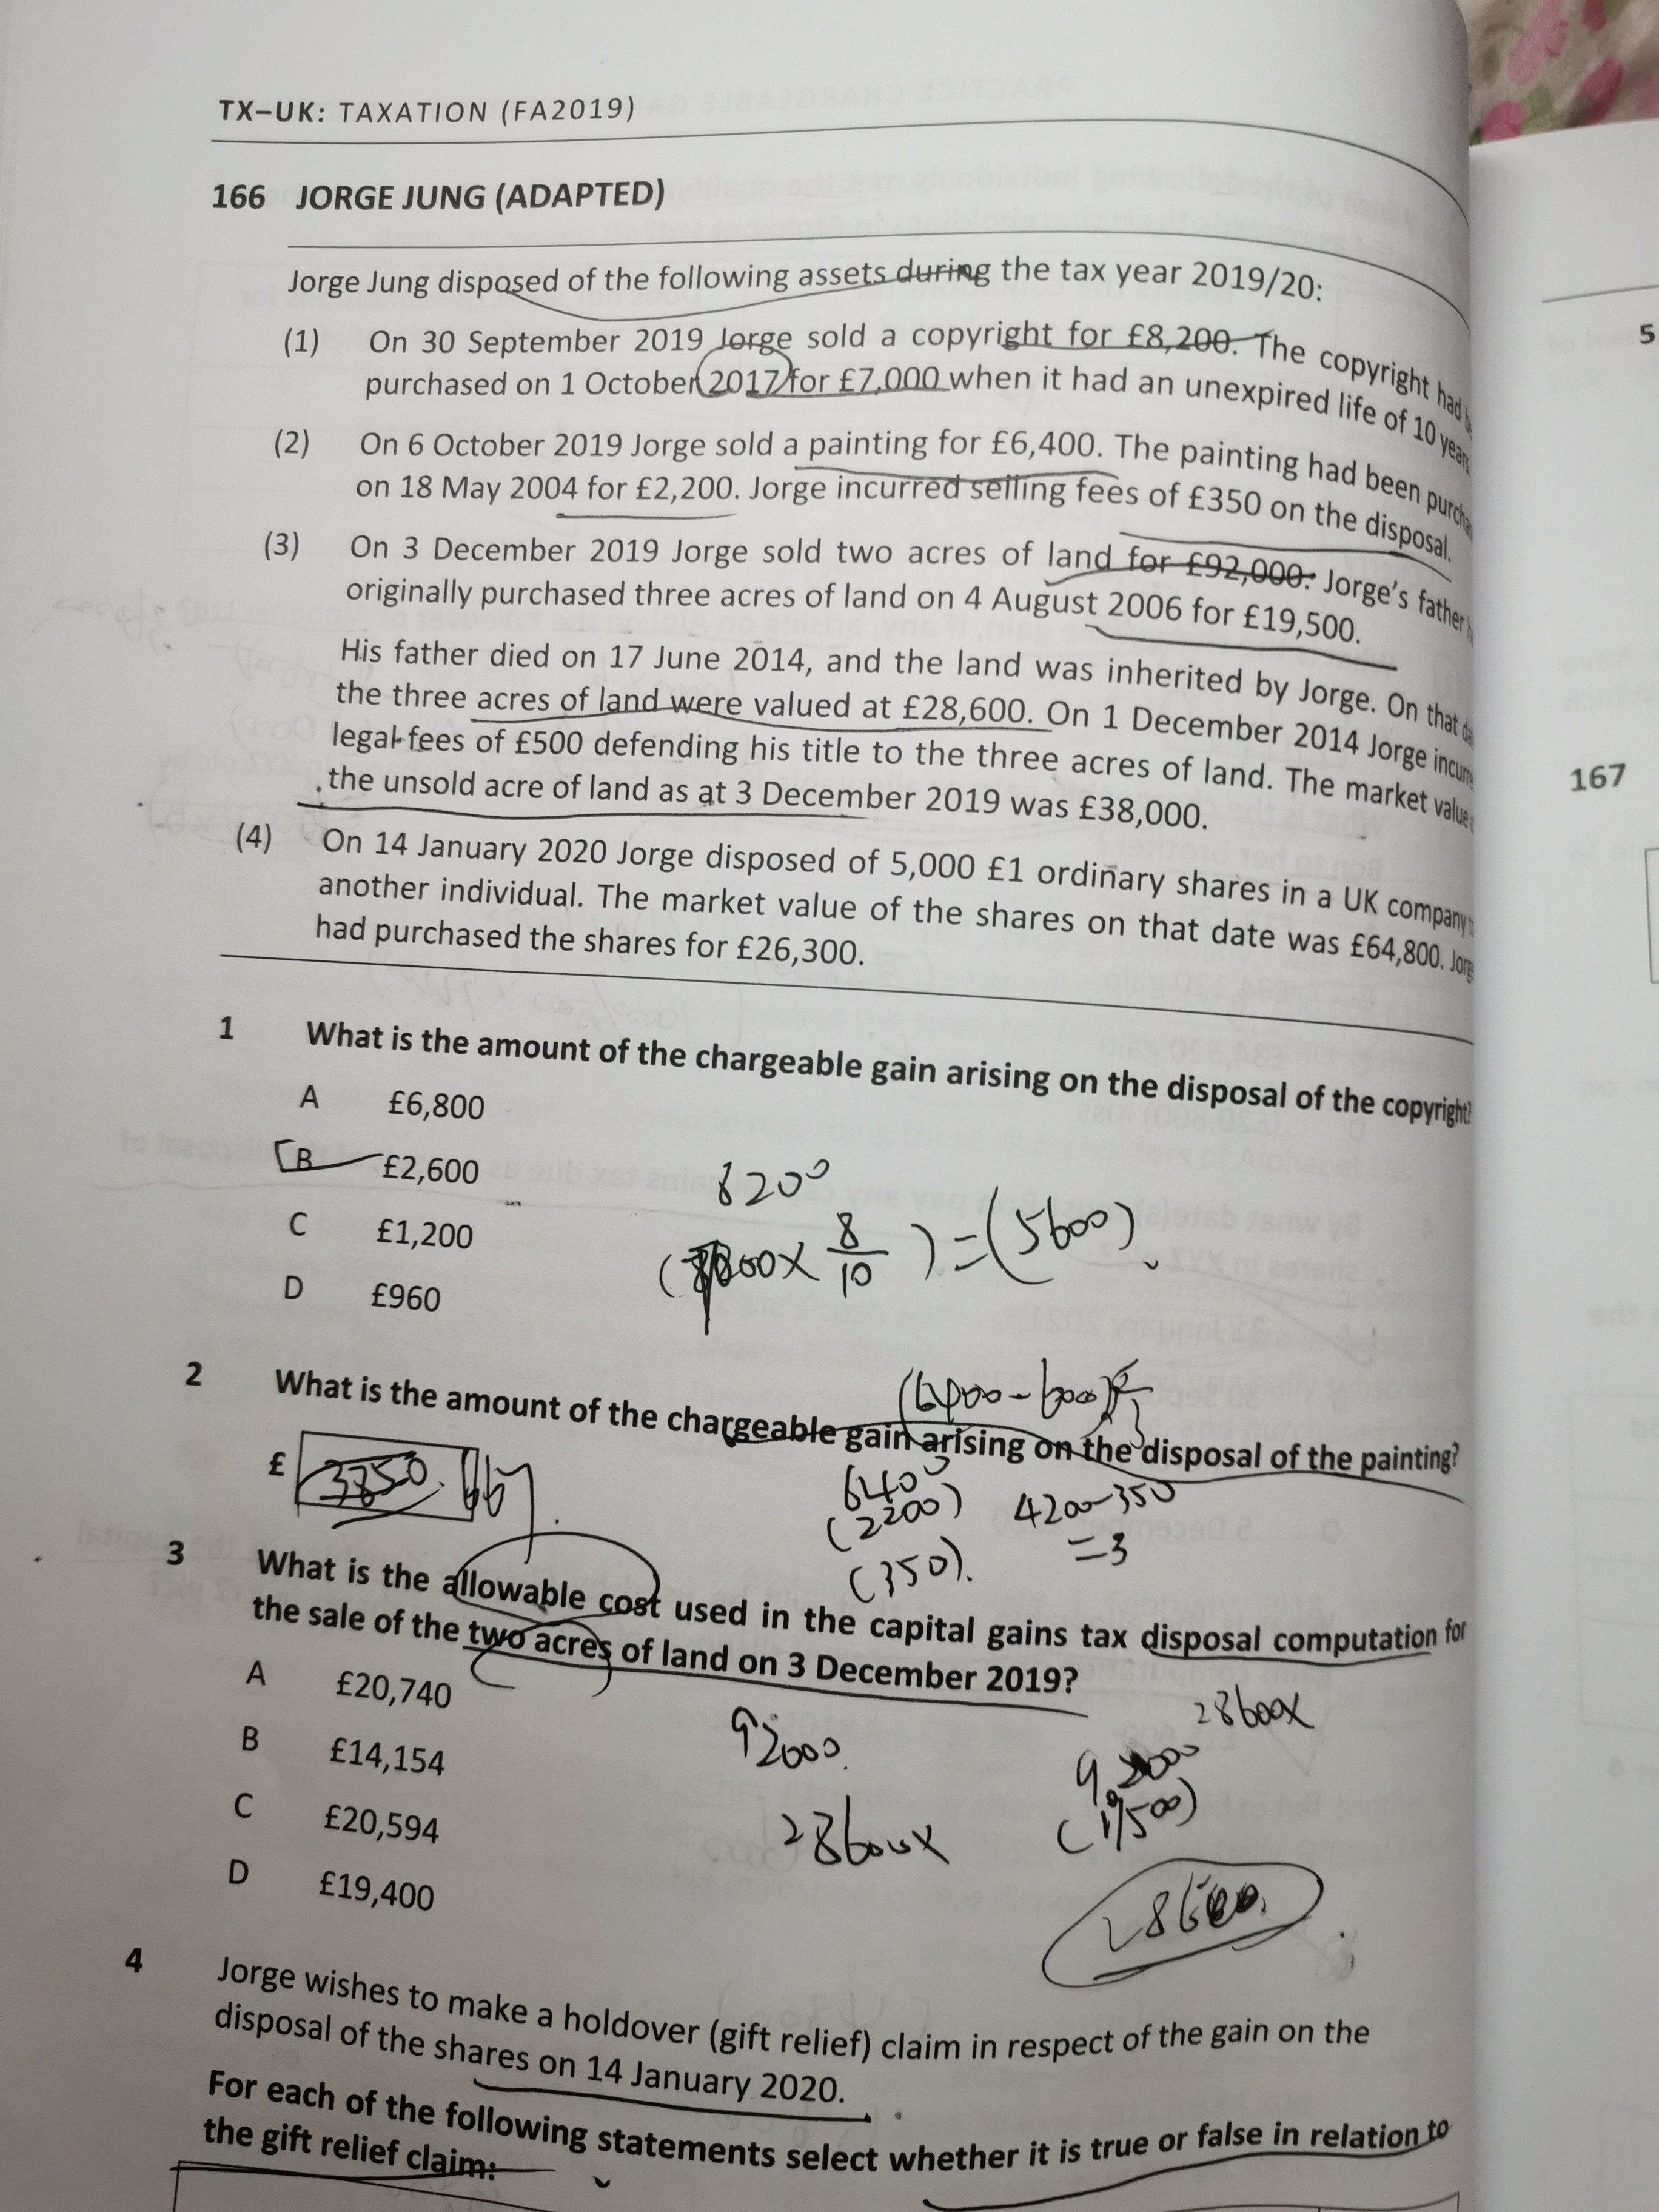 TX–UK: TAXATION (FA2019)
166 JORGE JUNG (ADAPTED)
Jorge Jung disposed of the following assets during the tax year 2019/20:
(1) On 30 September 2019 Jorge sold a copyright for £8,200. The copyright had
purchased on 1 October 2017 for £7,000 when it had an unexpired life of 10 years
(2) On 6 October 2019 Jorge sold a painting for £6,400. The painting had been
on 18 May 2004 for £2,200. Jorge incurred selling fees of £350 on the disposal.
(3) On 3 December 2019 Jorge sold two acres of land for £92,000. Jorge's father
originally purchased three acres of land on 4 August 2006 for £19,500.
His father died on 17 June 2014, and the land was inherited by Jorge. On that
the three acres of land were valued at £28,600. On 1 December 2014 Jorge
legal fees of £500 defending his title to the three acres of land. The market value
the unsold acre of land as at 3 December 2019 was £38,000.
(4) On 14 January 2020 Jorge disposed of 5,000 £1 ordinary shares in a UK company
another individual. The market value of the shares on that date was £64,800.
had purchased the shares for £26,300.
1 What is the amount of the chargeable gain arising on the disposal of the copyright?
A £6,800
B £2,600
C £1,200
D £960
8200
8/10 ) = (5600)
2 What is the amount of the chargeable gain arising on the disposal of the painting?
£ 3850
6400
(2200)
(350).
4200-350
=3
3 What is the allowable cost used in the capital gains tax disposal computation for
the sale of the two acres of land on 3 December 2019?
A £20,740
B £14,154
C £20,594
D £19,400
92000.
28600x
28600x
(19500)
4 Jorge wishes to make a holdover (gift relief) claim in respect of the gain on the
disposal of the shares on 14 January 2020.
For each of the following statements select whether it is true or false in relation to
the gift relief claim:
5
167